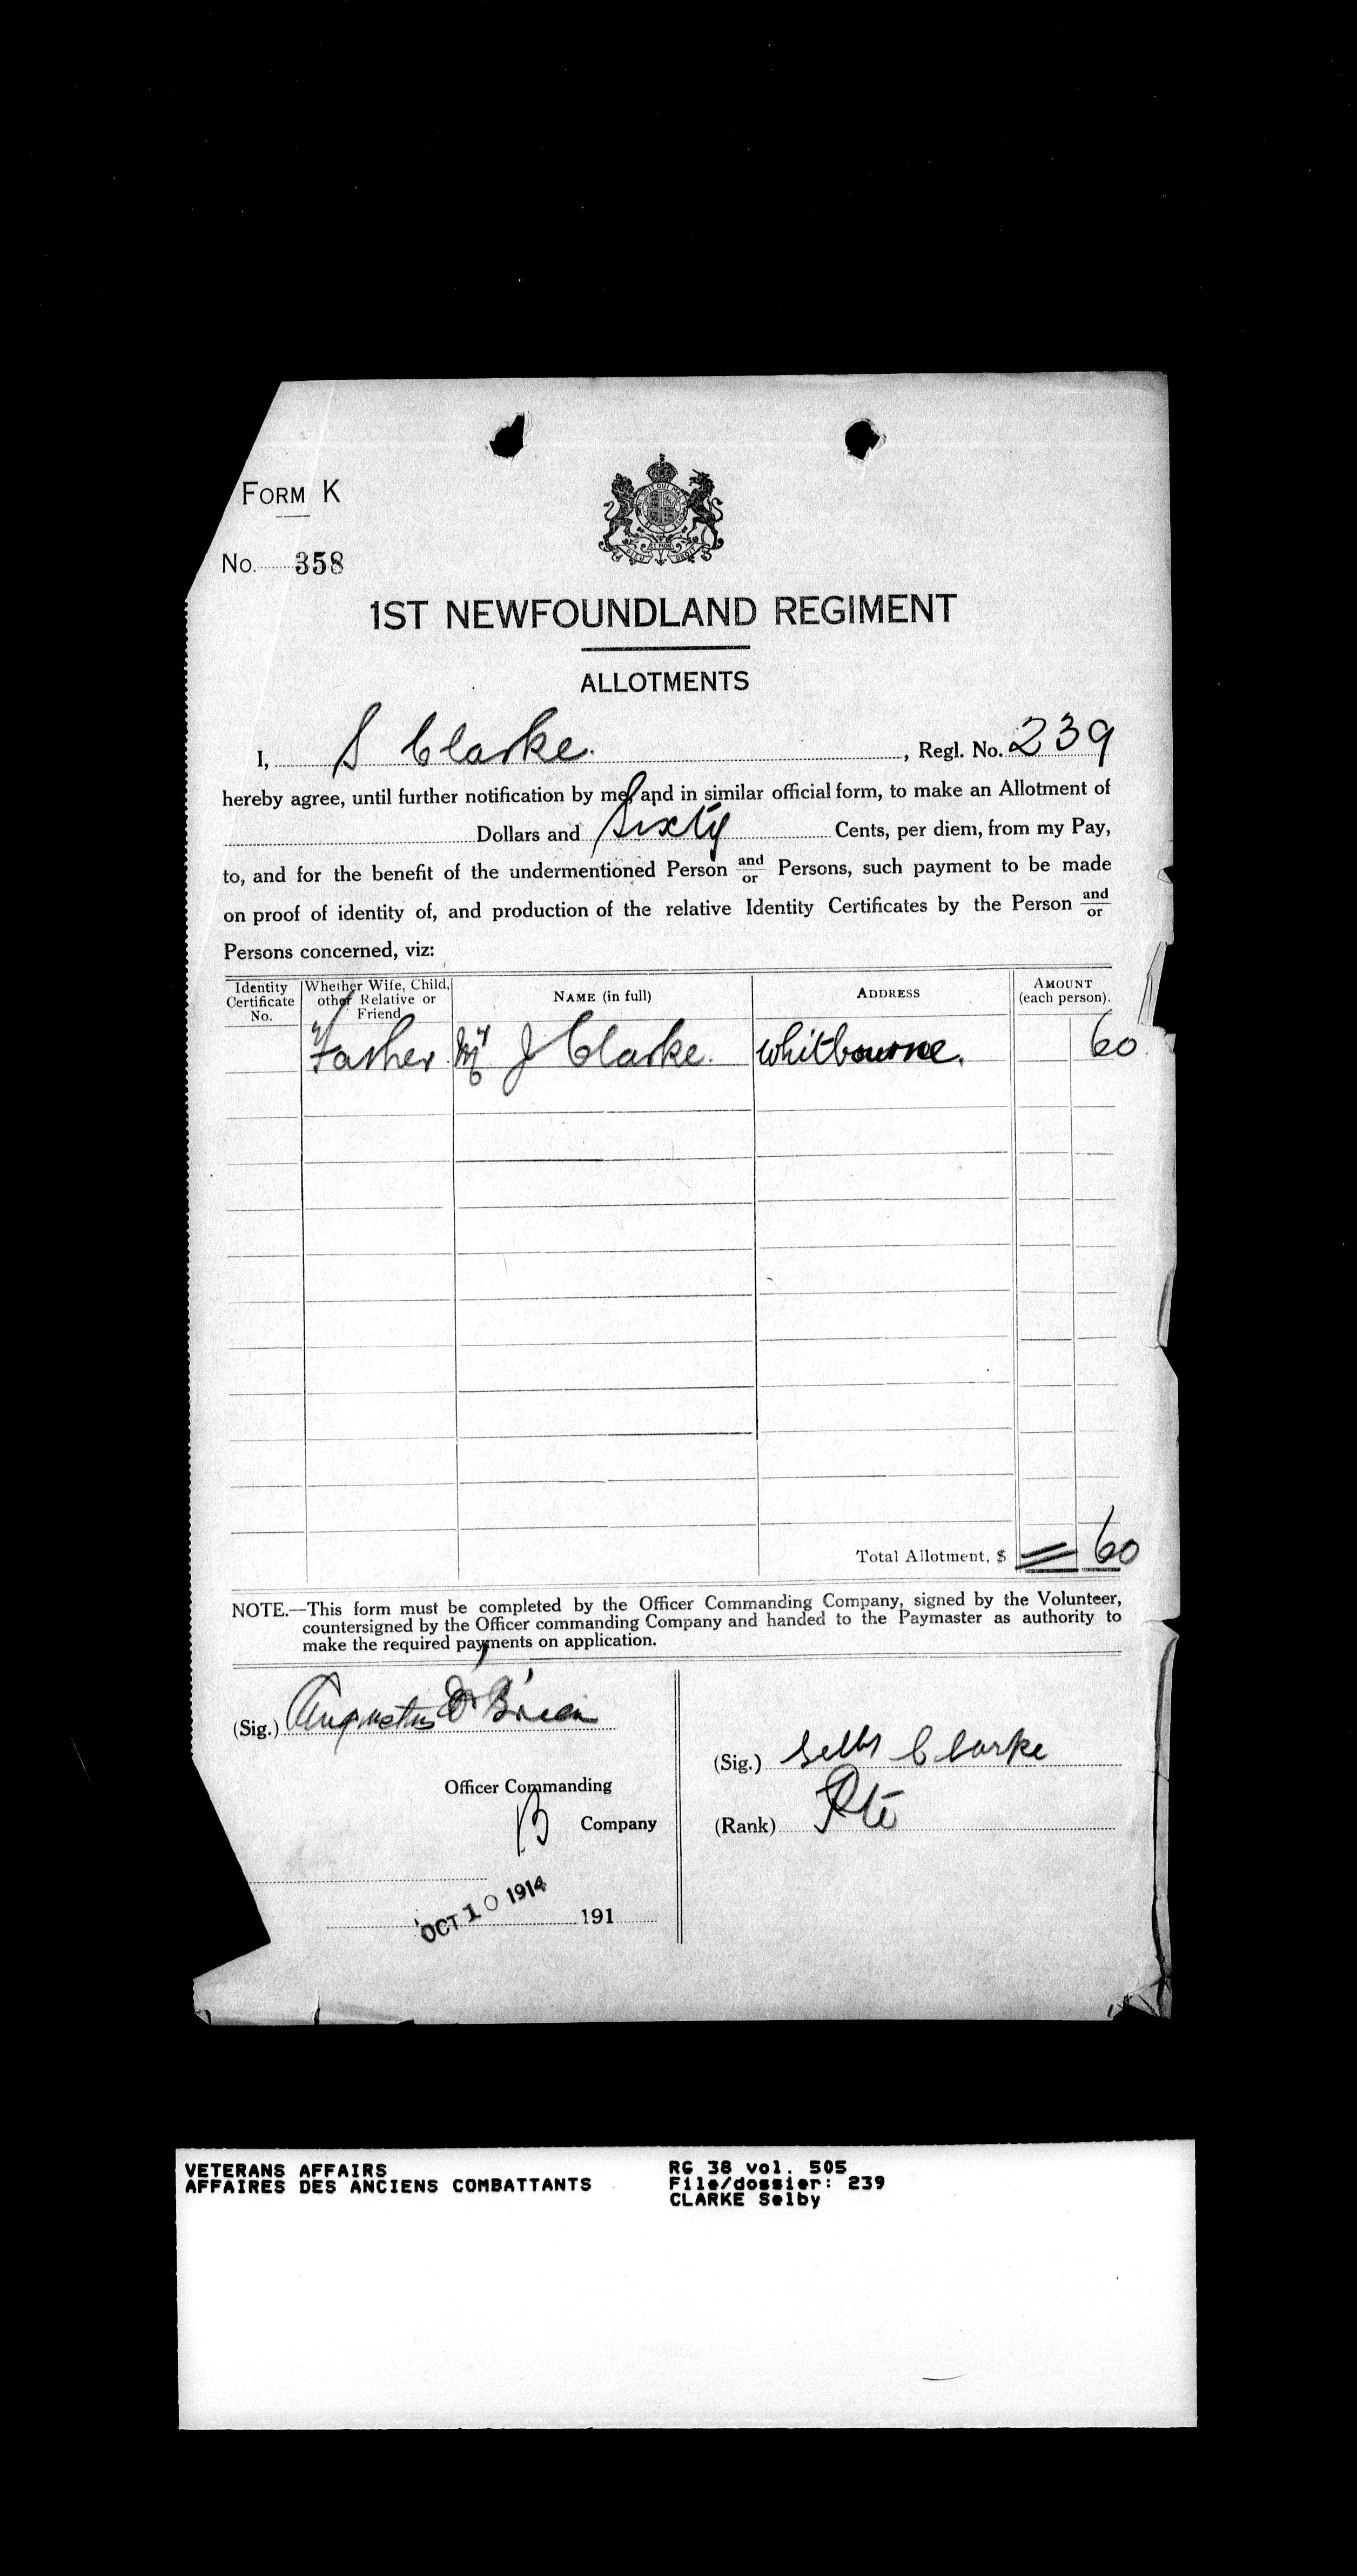 FORM K
No. 358
1ST NEWFOUNDLAND REGIMENT
ALLOTMENTS
I, S Clarke. , Regl. No. 239
hereby agree, until further notification by me, and in similar official form, to make an Allotment of
Dollars and Sixty Cents, per diem, from my Pay,
to, and for the benefit of the undermentioned Person and/or Persons, such payment to be made
on proof of identity of, and production of the relative Identity Certificates by the Person and/or
Persons concerned, viz:
Identity Certificate No. Whether Wife, Child, other Relative or Friend NAME (in full) ADDRESS AMOUNT (each person).
Father Mr J Clarke. Whitbourne. 60
Total Allotment, $ 60
NOTE.—This form must be completed by the Officer Commanding Company, signed by the Volunteer,
countersigned by the Officer commanding Company and handed to the Paymaster as authority to
make the required payments on application.
(Sig.) Augustus O'Brien
(Sig.) Selby Clarke
Officer Commanding
B Company
(Rank) Pte
OCT 10 1914 191
VETERANS AFFAIRS RG 38 vol. 505
AFFAIRES DES ANCIENS COMBATTANTS File/dossier: 239
CLARKE Selby